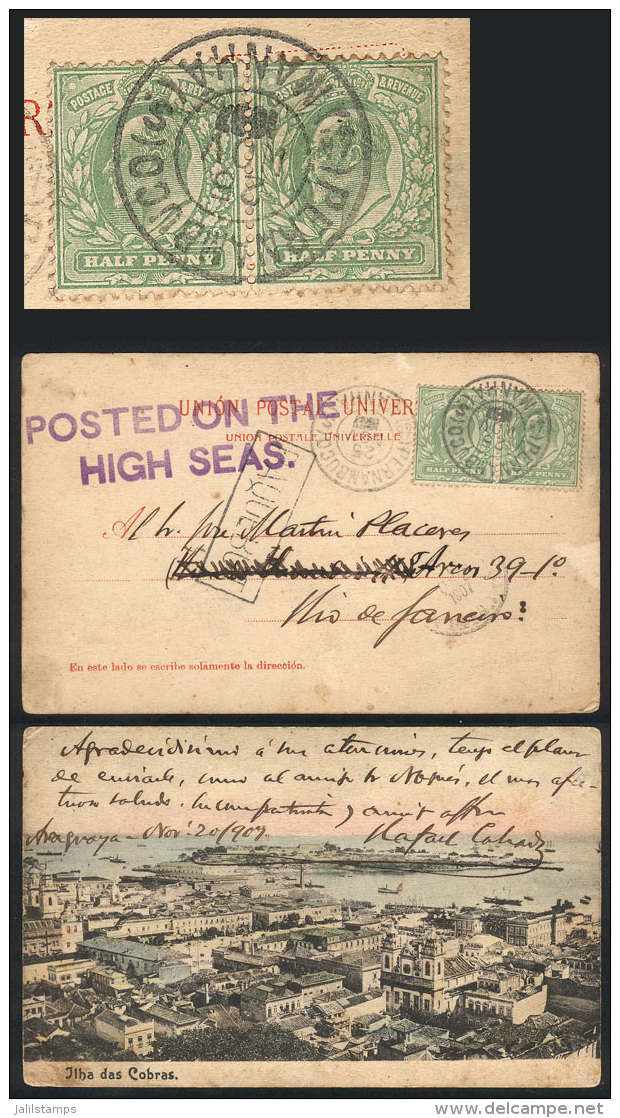 POSTAGE & REVENUE
POSTAGE & REVENUE
HALF PENNY
HALF PENNY
UNIÓN POSTAL UNIVER
UNION POSTALE UNIVERSELLE
POSTED ON THE
HIGH SEAS.
HALF PENNY
HALF PENNY
Al Sr. José Martin Placeres
Arcos 39-1º
Rio de Janeiro
1907
En este lado se escribe solamente la dirección.
Agradecidisimo á sus atenciones, tengo el placer
de enviarle, como al amigo Sr Nogués, el mas afec-
tuoso saludo. Su compatriota y amigo affmo
Araguaya - Nov. 20/907. Rafael
Ilha das Cobras.
jalilstamps
delcampe.net